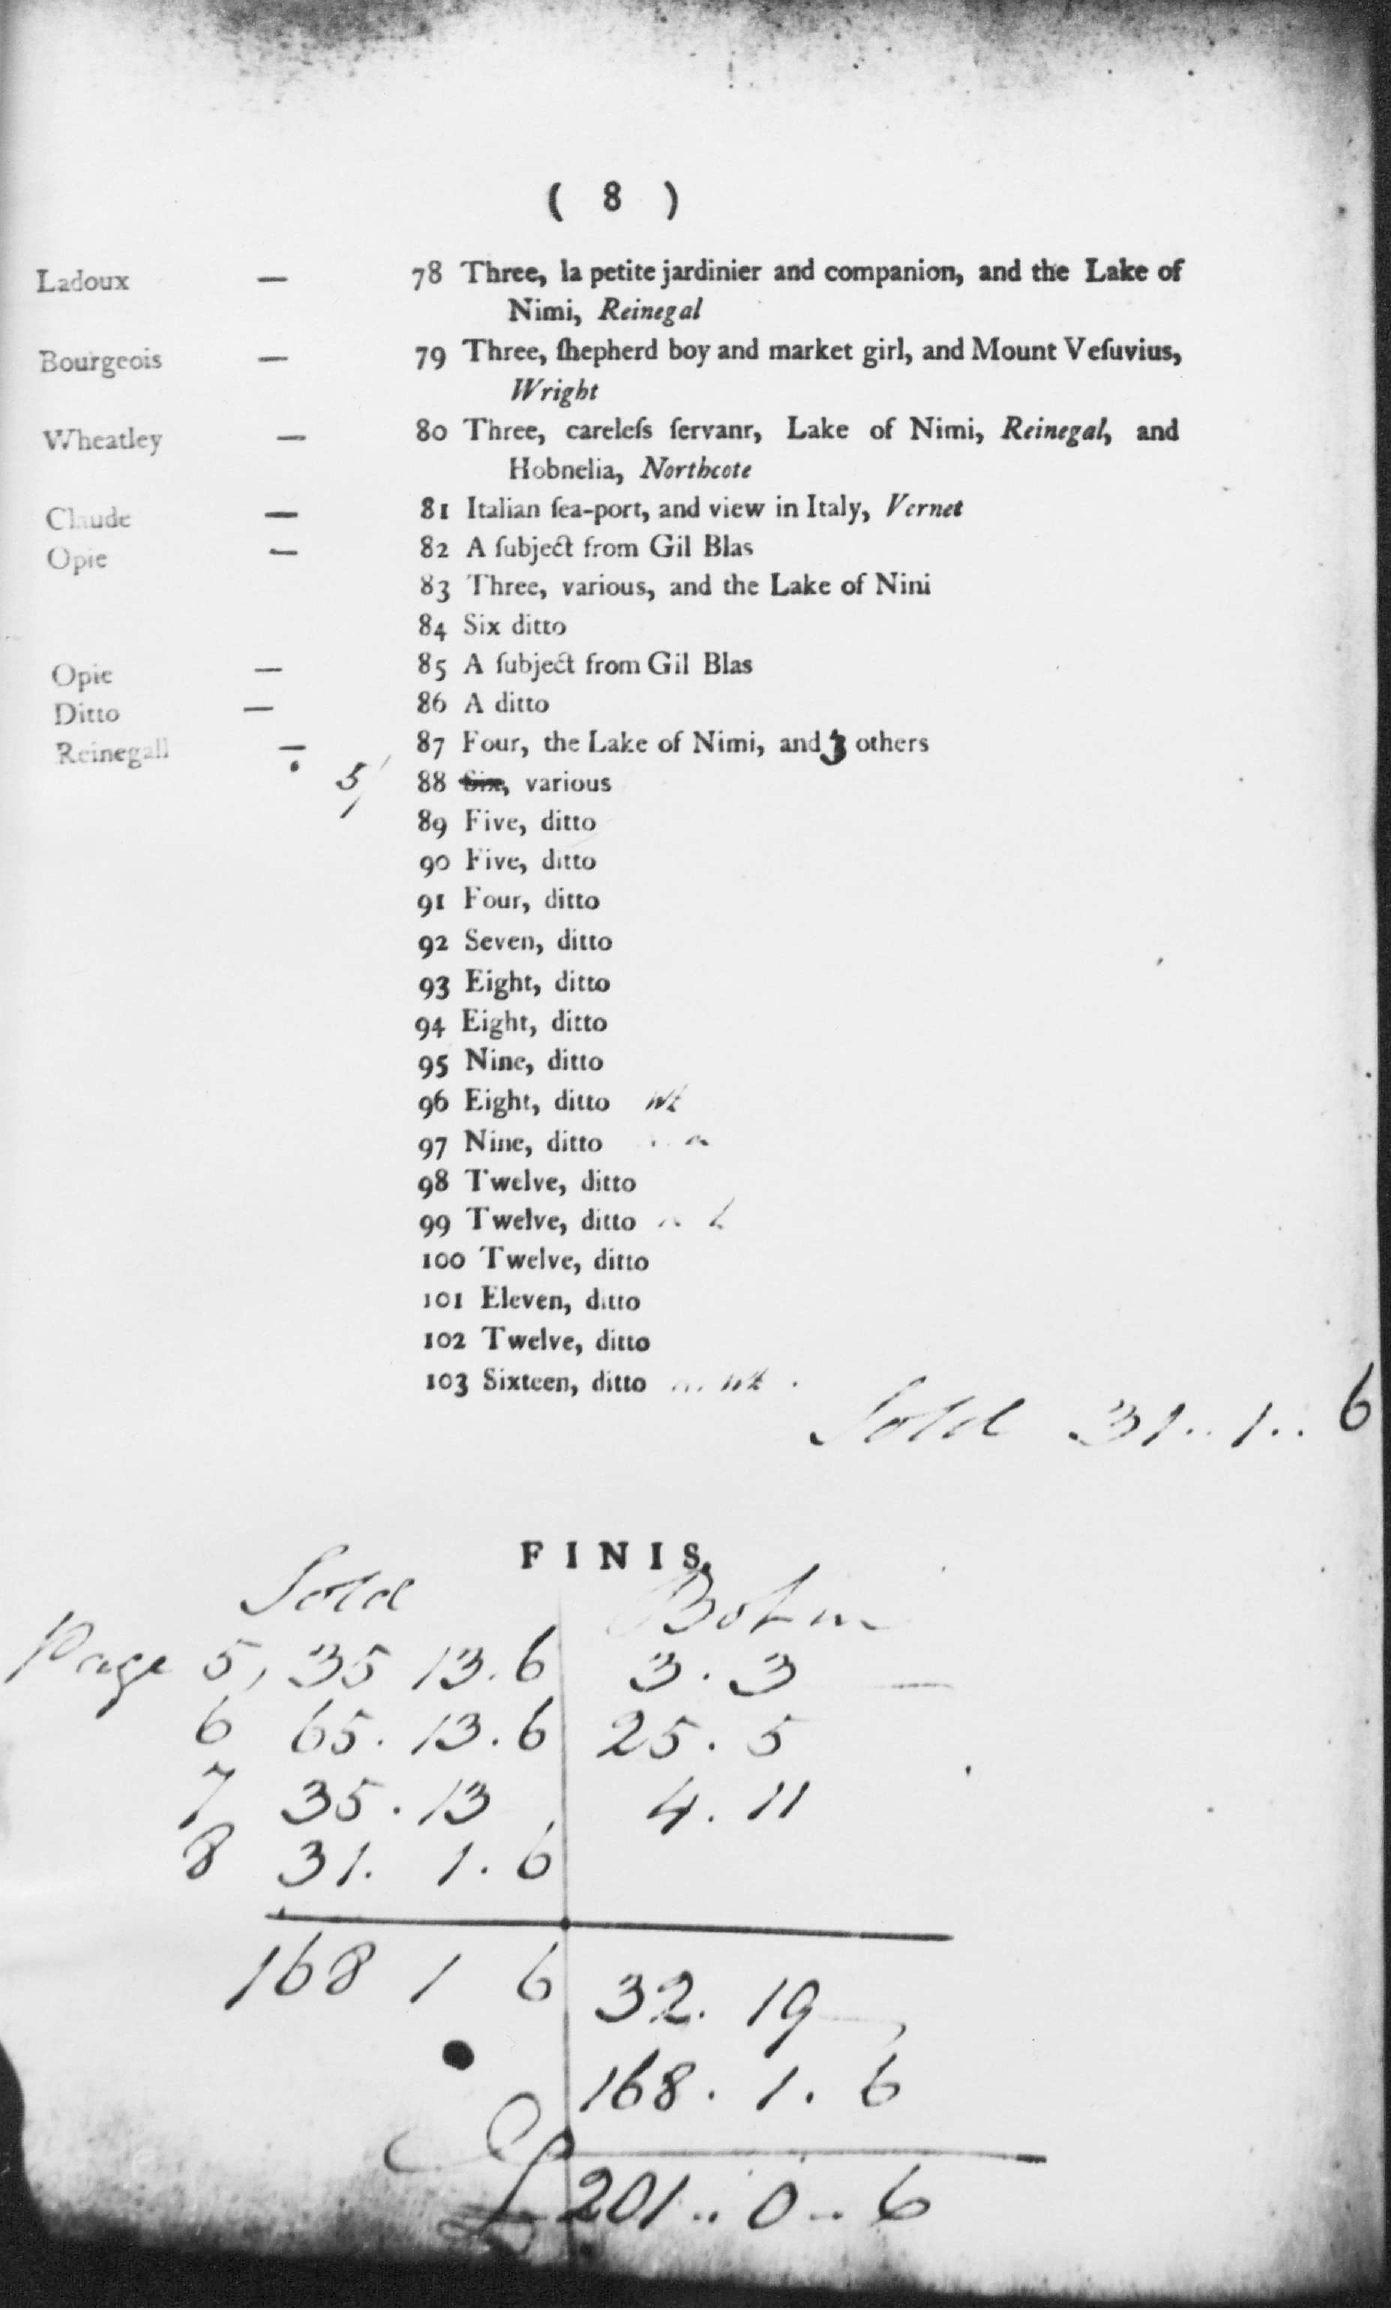 ( 8 )
Ladoux — 78 Three, la petite jardinier and companion, and the Lake of
Nimi, Reinegal
Bourgeois — 79 Three, ſhepherd boy and market girl, and Mount Veſuvius,
Wright
Wheatley — 80 Three, careleſs ſervanr, Lake of Nimi, Reinegal, and
Hobnelia, Northcote
Claude — 81 Italian ſea-port, and view in Italy, Vernet
Opie — 82 A ſubject from Gil Blas
83 Three, various, and the Lake of Nini
84 Six ditto
Opie — 85 A ſubject from Gil Blas
Ditto — 86 A ditto
Reinegall — 87 Four, the Lake of Nimi, and 3 others
5/ 88 Six, various
89 Five, ditto
90 Five, ditto
91 Four, ditto
92 Seven, ditto
93 Eight, ditto
94 Eight, ditto
95 Nine, ditto
96 Eight, ditto
97 Nine, ditto
98 Twelve, ditto
99 Twelve, ditto
100 Twelve, ditto
101 Eleven, ditto
102 Twelve, ditto
103 Sixteen, ditto
Sold 31..1..6
FINIS.
Sold
Page 5, 35 13.6 3.3 —
6 65.13.6 25.5
7 35.13 4.11
8 31. 1.6
168 1 6 32.19
168.1.6
£ 201..0..6